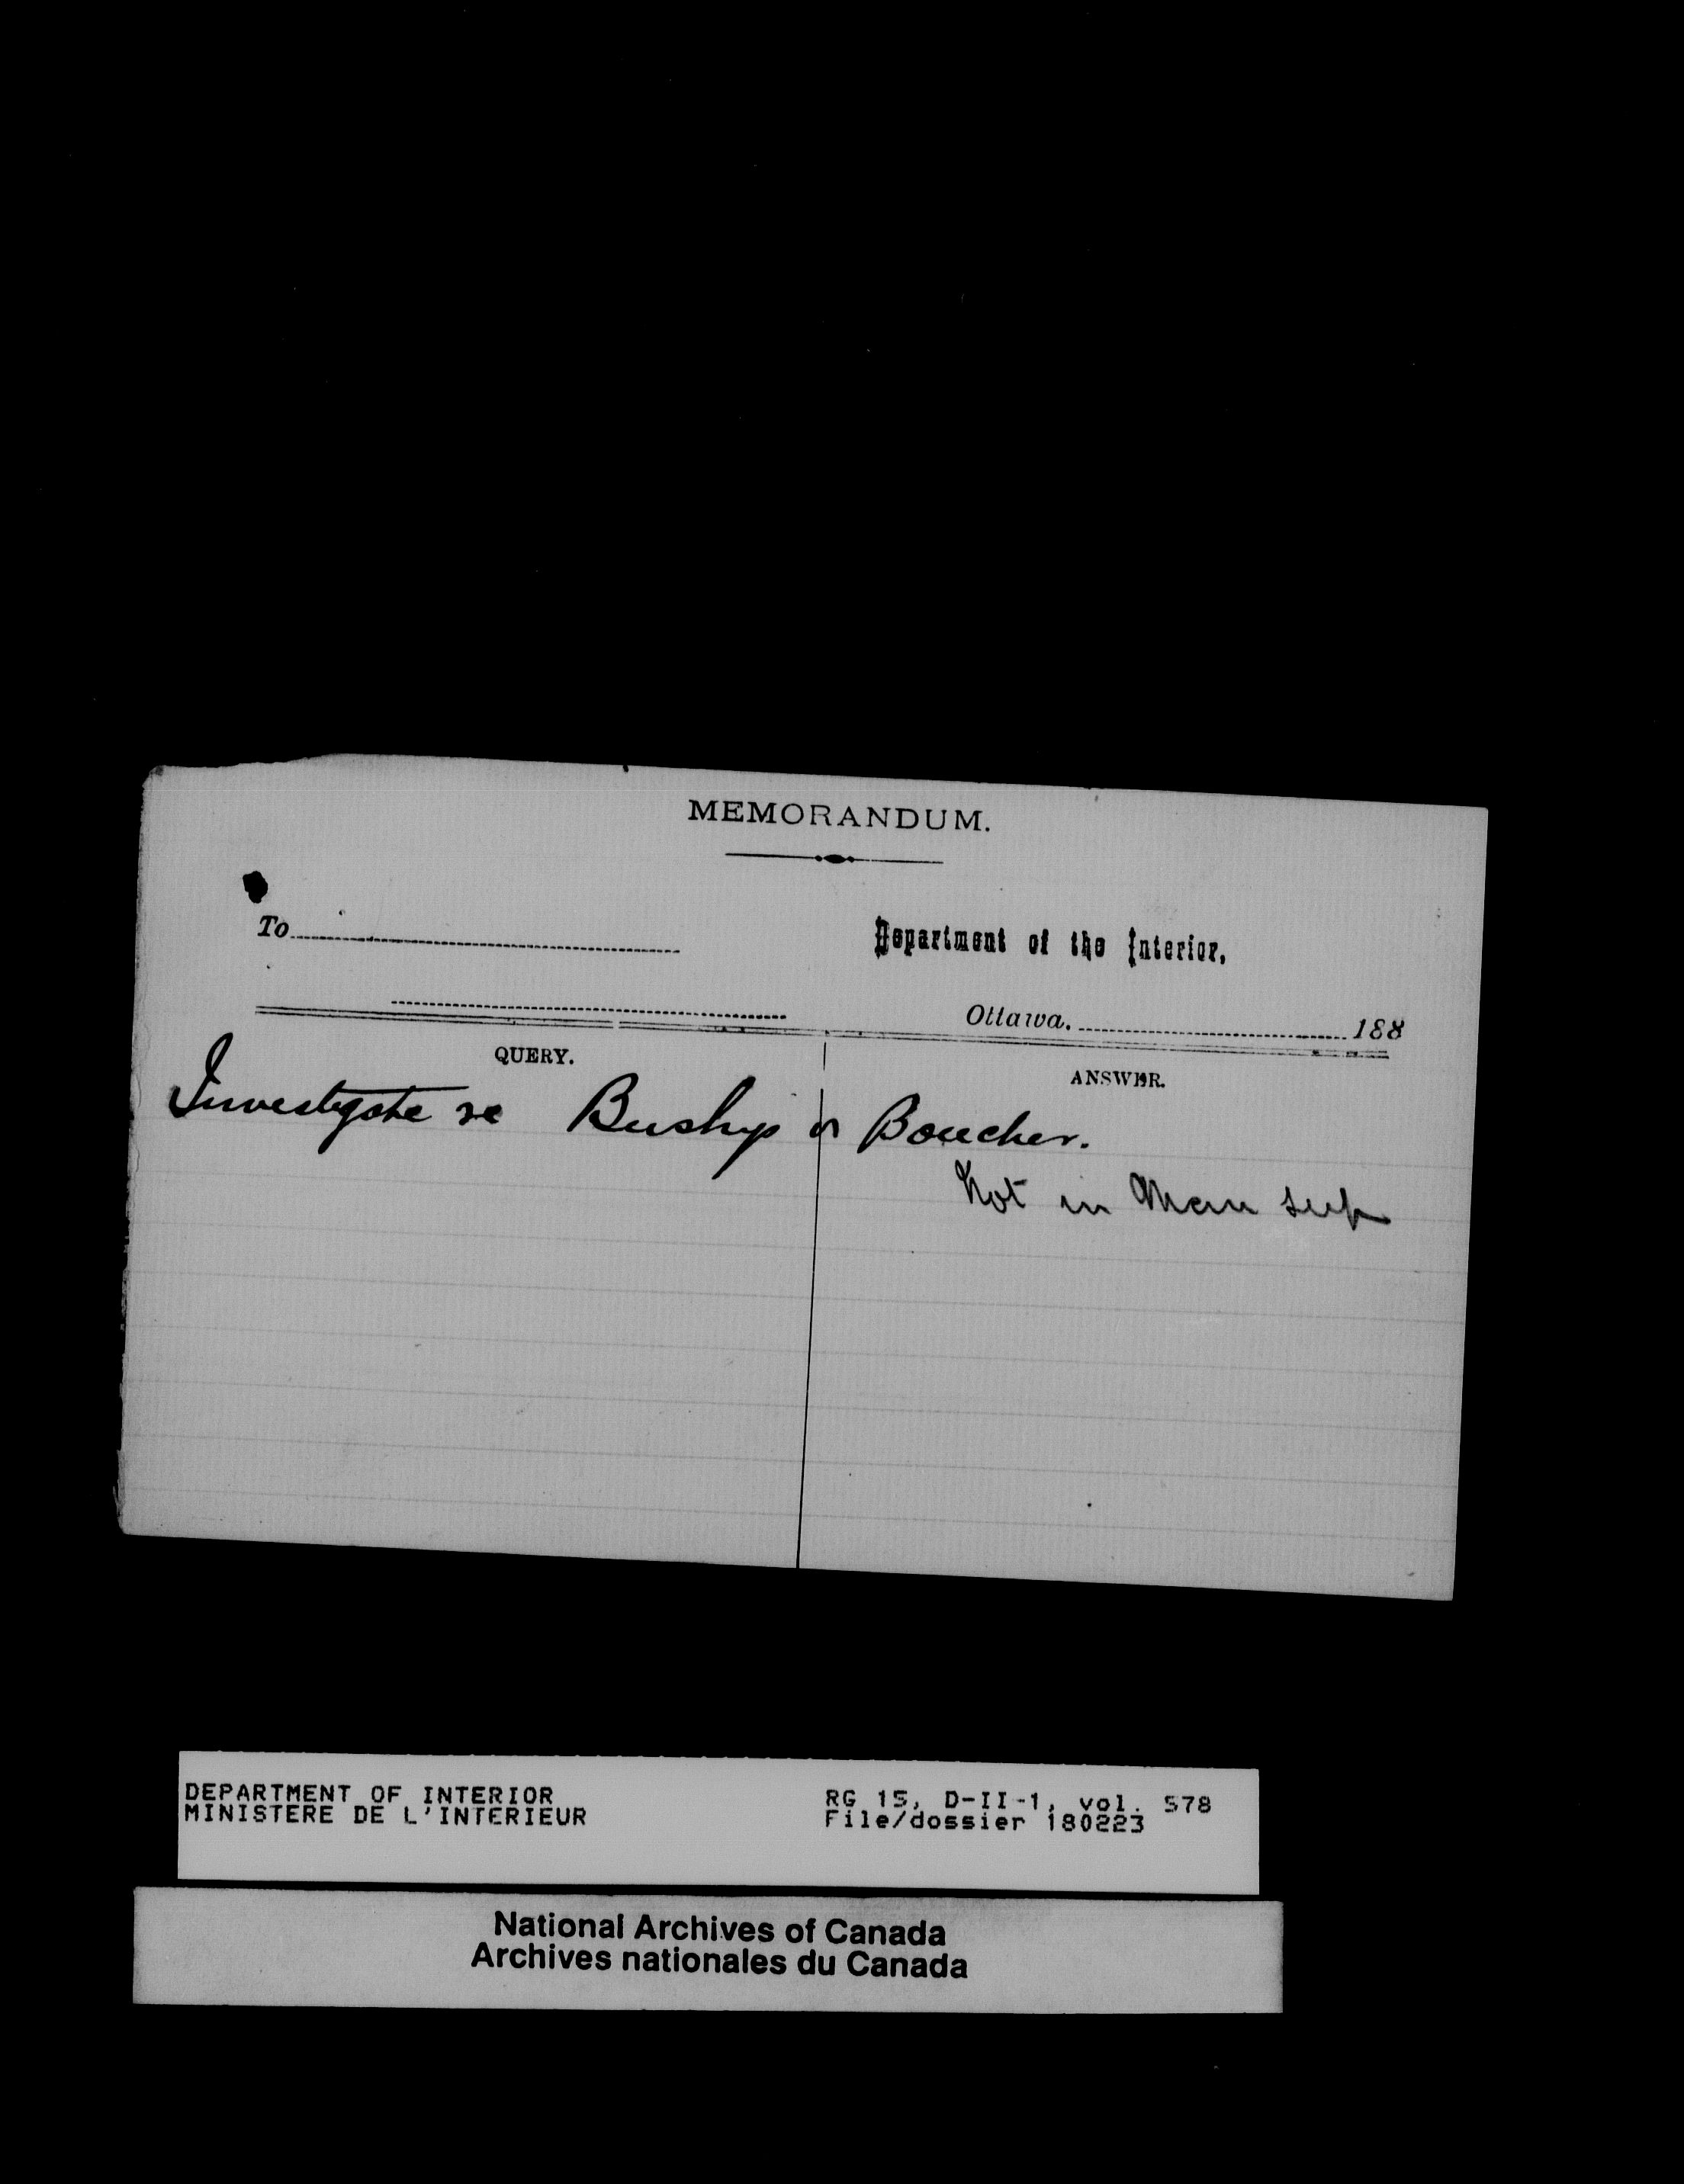 MEMORANDUM.
To
Department of the Interior,
Ottawa. 188
QUERY.
ANSWER.
Investigate re Bushy or Boucher.
Not in Man sup
DEPARTMENT OF INTERIOR
MINISTERE DE L'INTERIEUR
RG 15, D-II-1, vol. 578
File/dossier 180223
National Archives of Canada
Archives nationales du Canada